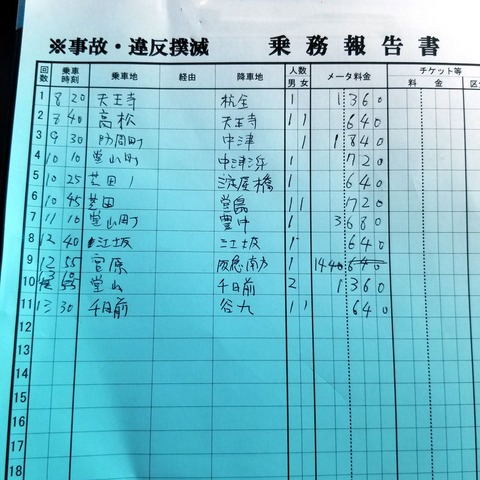 ※事故・違反撲滅 乗務報告書
回数 乗車時刻 乗車地 経由 降車地 人数 男 女 メータ料金 チケット等 料金 区
1 8 20 天王寺 杭全 1 1360
2 8 40 高松 天王寺 1 1 640
3 9 30 中津 1 1840
4 10 10 堂山町 中津浜 1 1720
5 10 25 芝田1 淀屋橋 1 640
6 10 45 芝田 堂島 1 1 1720
7 11 10 堂山町 豊中 1 3680
8 12 40 江坂 江坂 1 640
9 12 55 宮原 阪急南方 1 1440 640
10 13 10 55 堂山 千日前 2 1360
11 13 30 千日前 谷九 1 1 640
12
13
14
15
16
17
18